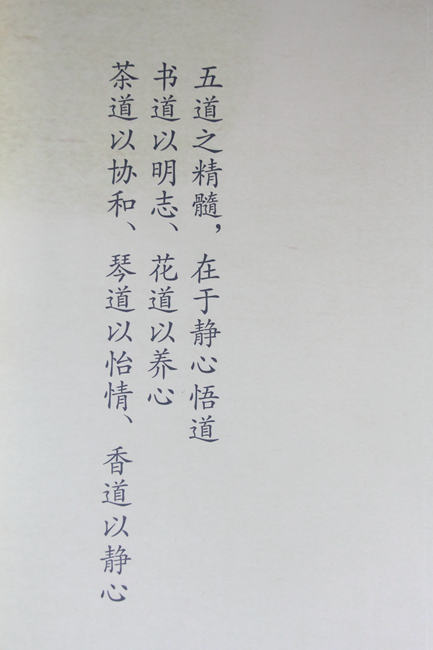 五道之精髓，在于静心悟道
书道以明志、花道以养心
茶道以协和、琴道以怡情、香道以静心